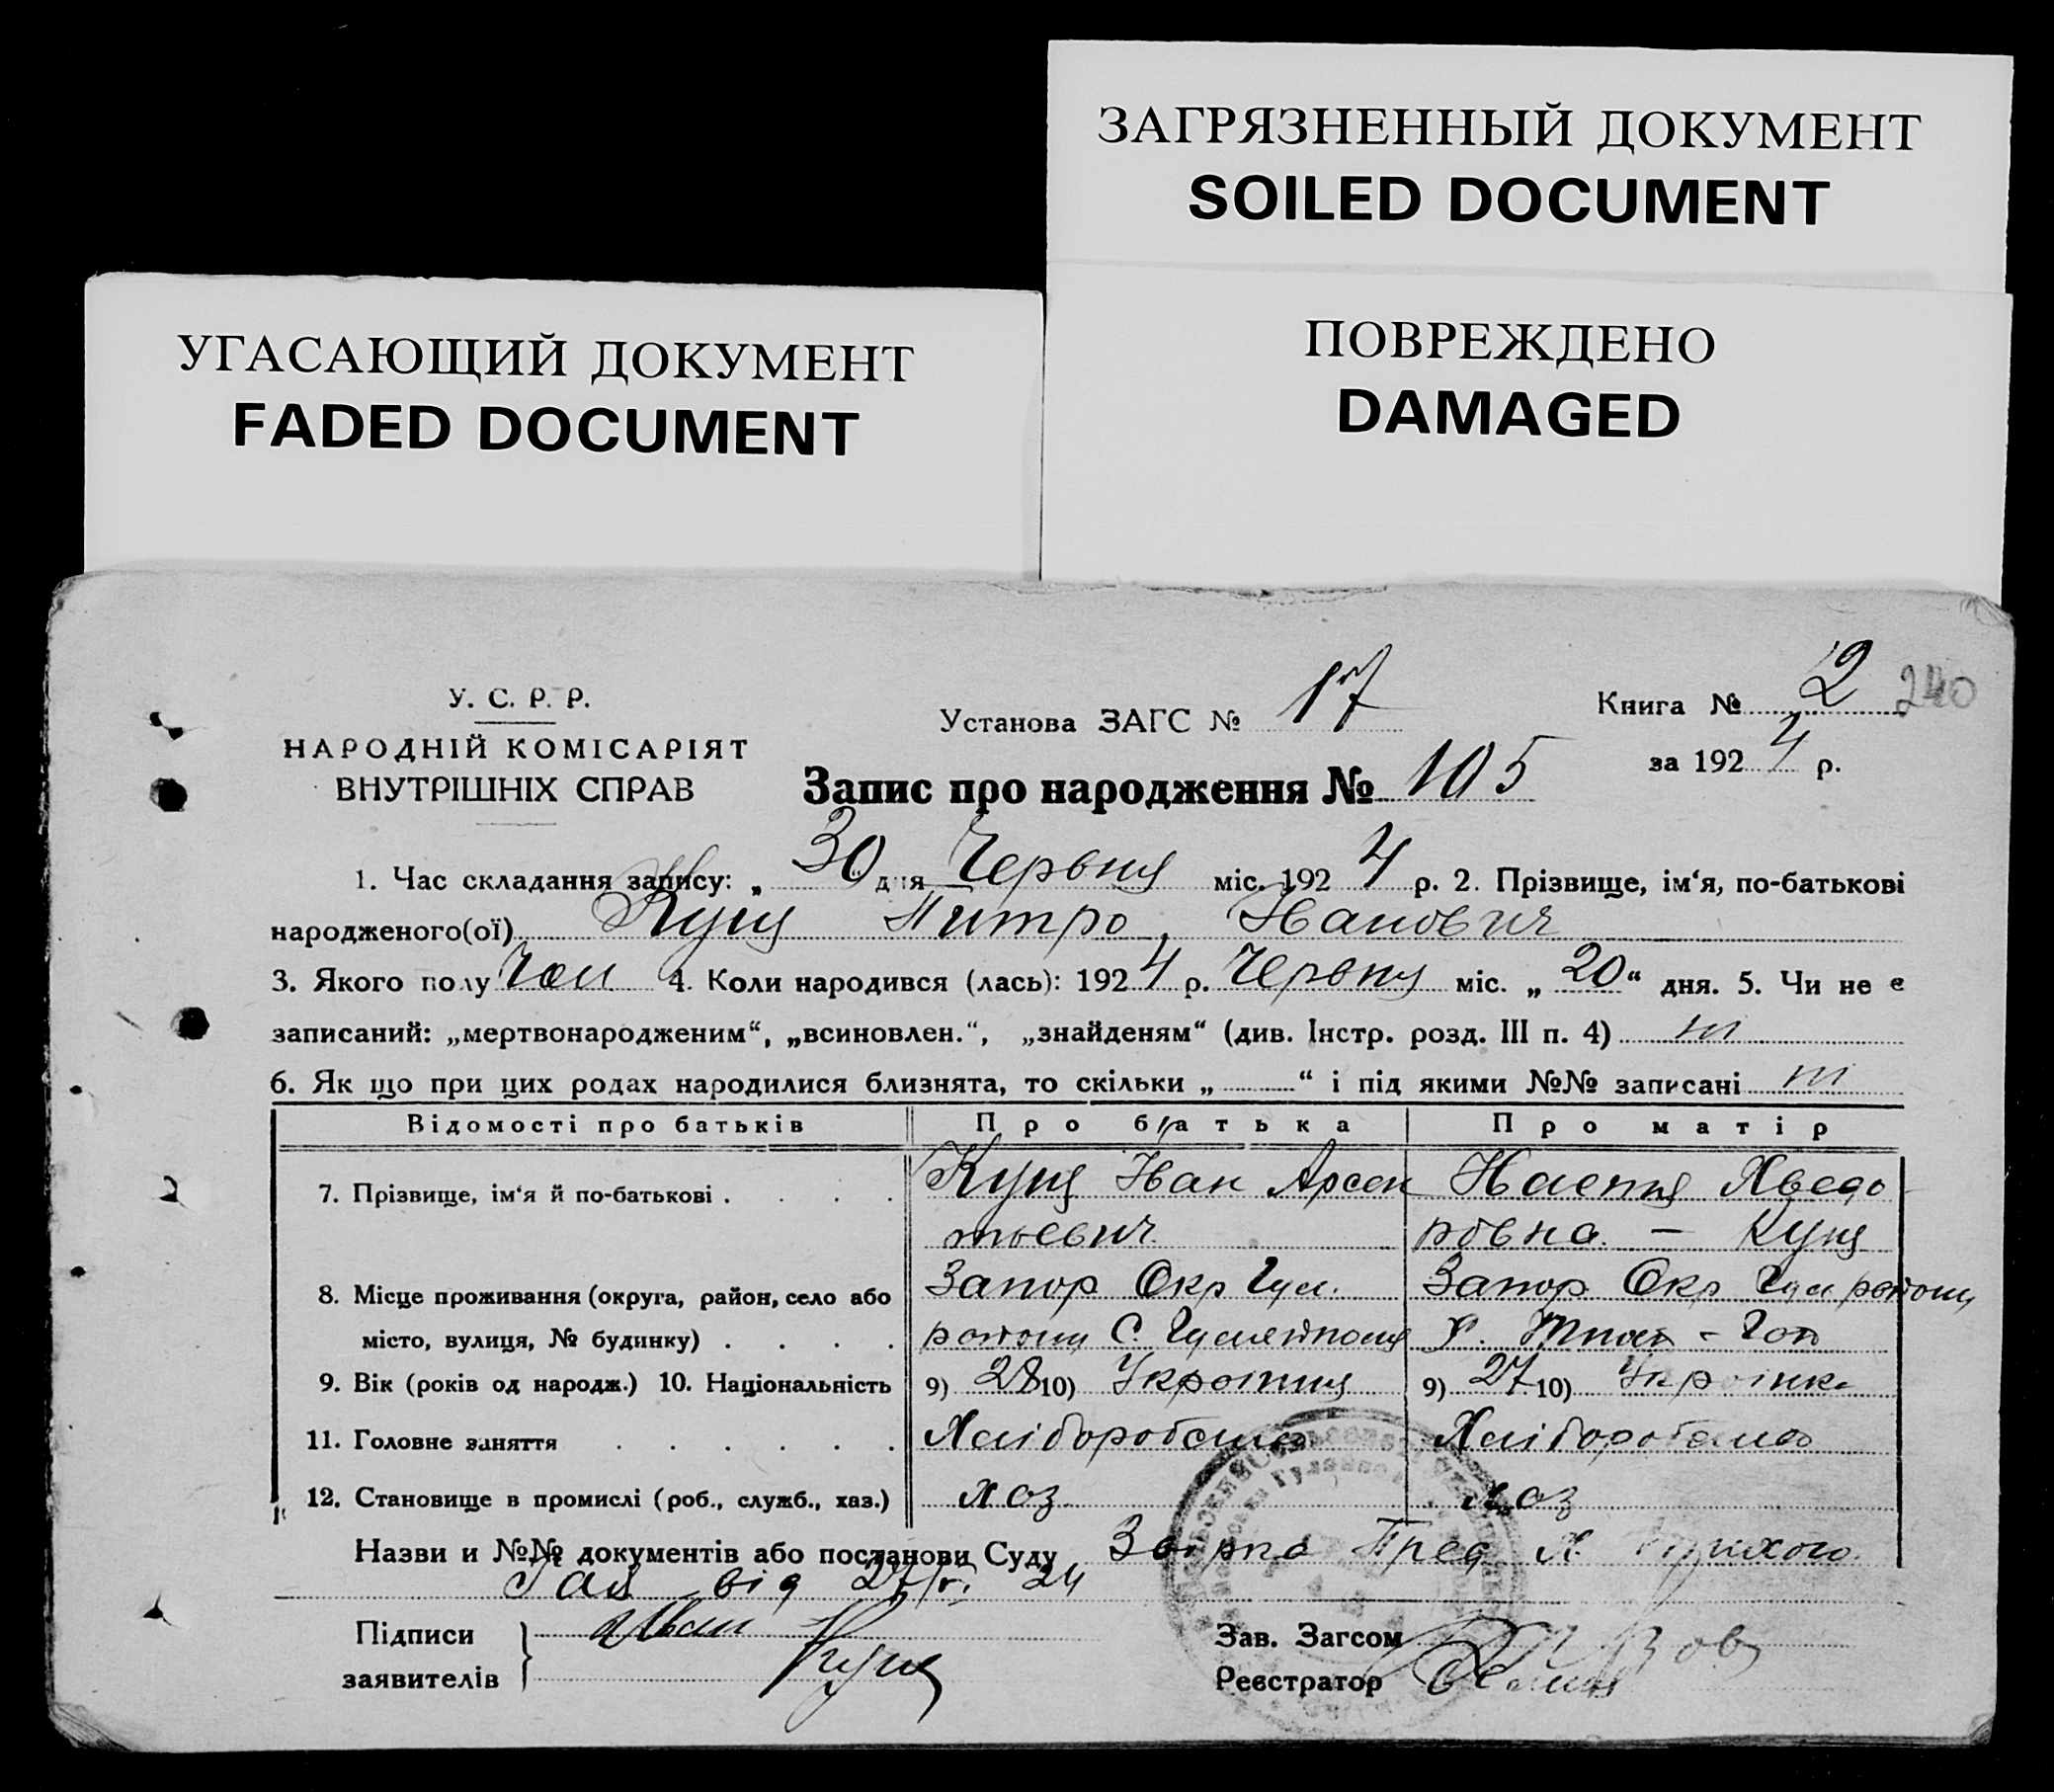 ЗАГРЯЗНЕННЫЙ ДОКУМЕНТ
SOILED DOCUMENT
УГАСАЮЩИЙ ДОКУМЕНТ
FADED DOCUMENT
ПОВРЕЖДЕНО
DAMAGED
У. С. Р. Р.
НАРОДНІЙ КОМІСАРІЯТ
ВНУТРІШНІХ СПРАВ
Установа ЗАГС № 17
Книга № 2 240
за 1924 р.
Запис про народження № 105
1. Час складання запису: „ 30 дня Червня міс. 1924 р. 2. Прізвище, ім‘я, по-батькові
народженого(ої) Куця Питро Іванович
3. Якого полу Чол 4. Коли народився (лась): 1924 р. Червня міс. „ 20 “ дня. 5. Чи не є
записаний: „мертвонародженим“, „всиновлен.“, „знайденям“ (див. Інстр. розд. III п. 4)
6. Як що при цих родах народилися близнята, то скільки „ “ і під якими №№ записані
Відомості про батьків Про батька Про матір
7. Прізвище, ім‘я й по-батькові . . . . Куця Іван Арсен Настя Хведо
тьевич ровна — Куця
8. Місце проживання (округа, район, село або Запор Окр Гул. Запор Окр Гул району
місто, вулиця, № будинку) . . . . району С. Гуляйполя
9. Вік (років од народж.) 10. Національність 9) 28 10) Українця 9) 27 10) Українка
11. Головне заняття . . . . . . Хліборобство Хліборобство
12. Становище в промислі (роб., служб., хаз.) хоз хоз
Назви и №№ документів або постанови Суду Пред
від 24
Підписи заявителів Иван Куця
Зав. Загсом
Реєстратор